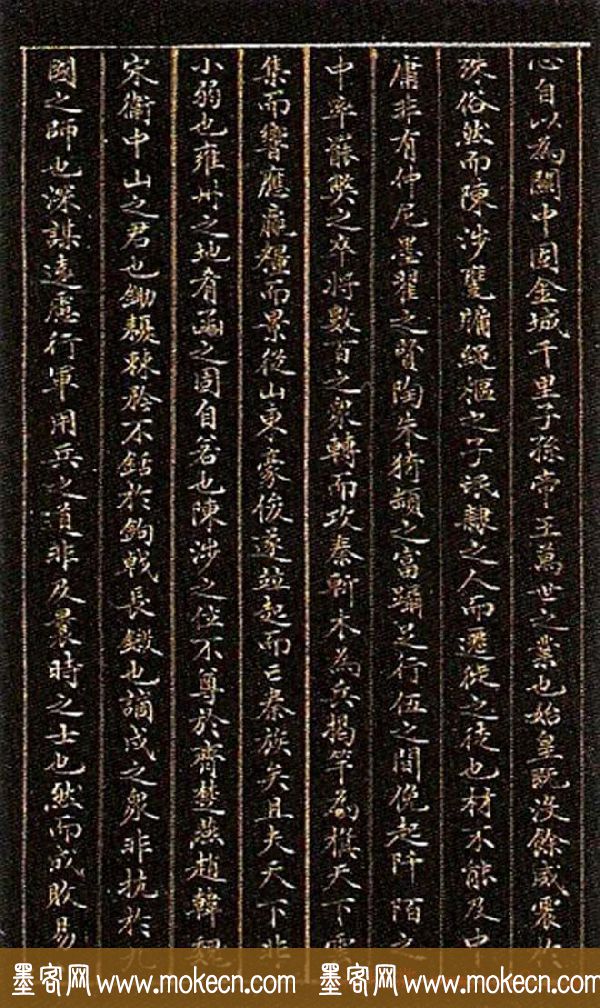 心自以為關中固金城千里子孫帝王萬世之業也始皇既沒餘威震於
殊俗然而陳涉甕牖繩樞之子氓隸之人而遷徙之徒也材不能及中
庸非有仲尼墨翟之賢陶朱猗頓之富躡足行伍之間俛起阡陌之
中率罷獘之卒將數百之衆轉而攻秦斬木為兵揭竿為旗天下雲
集而響應贏糧而景從山東豪俊遂並起而亡秦族矣且夫天下非
小弱也雍州之地肴函之固自若也陳涉之位不尊於齊楚燕趙韓魏
宋衛中山之君也鋤耰棘矜不銛於鉤戟長鎩也謫戍之衆非抗於九
國之師也深謀遠慮行軍用兵之道非及曩時之士也然而成敗易
墨客网 www.mokecn.com 墨客网 www.mokecn.com